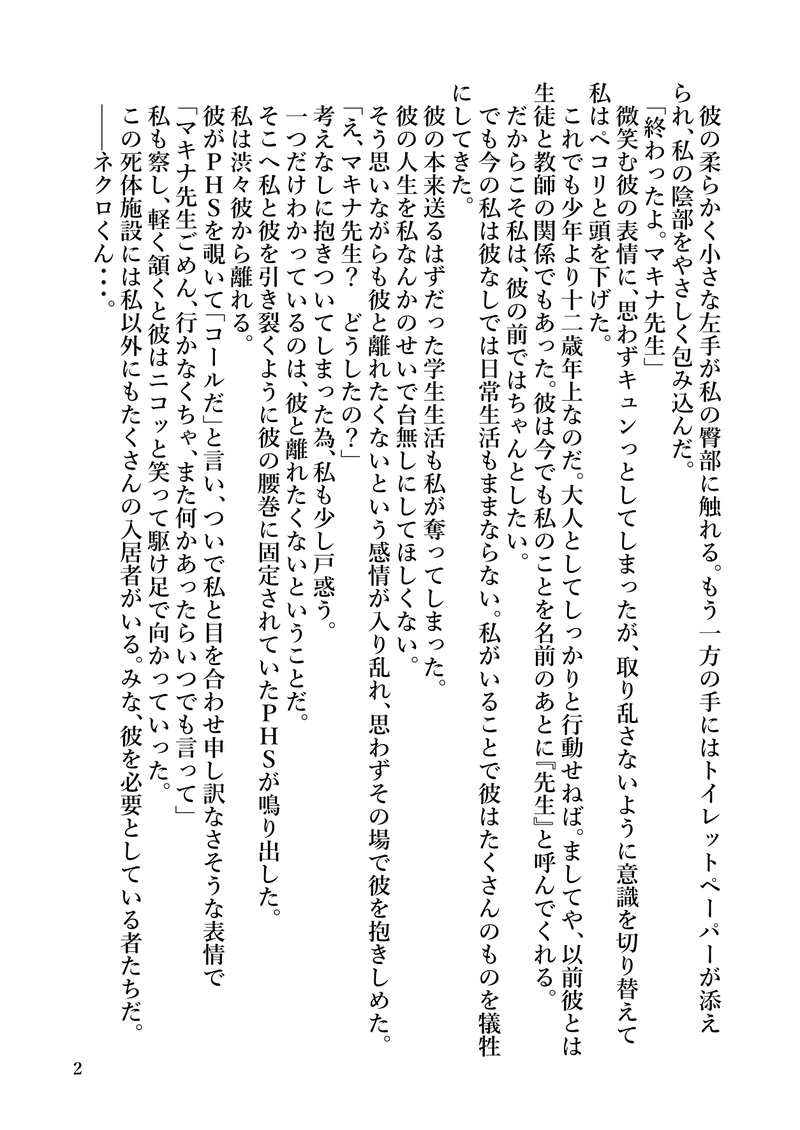 彼の柔らかく小さな左手が私の臀部に触れる。もう一方の手にはトイレットペーパーが添え
られ、私の陰部をやさしく包み込んだ。
「終わったよ。マキナ先生」
　微笑む彼の表情に、思わずキュンっとしてしまったが、取り乱さないように意識を切り替えて
私はペコリと頭を下げた。
　これでも少年より十二歳年上なのだ。大人としてしっかりと行動せねば。ましてや、以前彼とは
生徒と教師の関係でもあった。彼は今でも私のことを名前のあとに『先生』と呼んでくれる。
　だからこそ私は、彼の前ではちゃんとしたい。
　でも今の私は彼なしでは日常生活もままならない。私がいることで彼はたくさんのものを犠牲
にしてきた。
　彼の本来送るはずだった学生生活も私が奪ってしまった。
　彼の人生を私なんかのせいで台無しにしてほしくない。
　そう思いながらも彼と離れたくないという感情が入り乱れ、思わずその場で彼を抱きしめた。
「え、マキナ先生？　どうしたの？」
　考えなしに抱きついてしまった為、私も少し戸惑う。
　一つだけわかっているのは、彼と離れたくないということだ。
　そこへ私と彼を引き裂くように彼の腰巻に固定されていたＰＨＳが鳴り出した。
　私は渋々彼から離れる。
　彼がＰＨＳを覗いて「コールだ」と言い、ついで私と目を合わせ申し訳なさそうな表情で
「マキナ先生ごめん、行かなくちゃ、また何かあったらいつでも言って」
　私も察し、軽く頷くと彼はニコッと笑って駆け足で向かっていった。
　この死体施設には私以外にもたくさんの入居者がいる。みな、彼を必要としている者たちだ。
　――ネクロくん・・・。
2